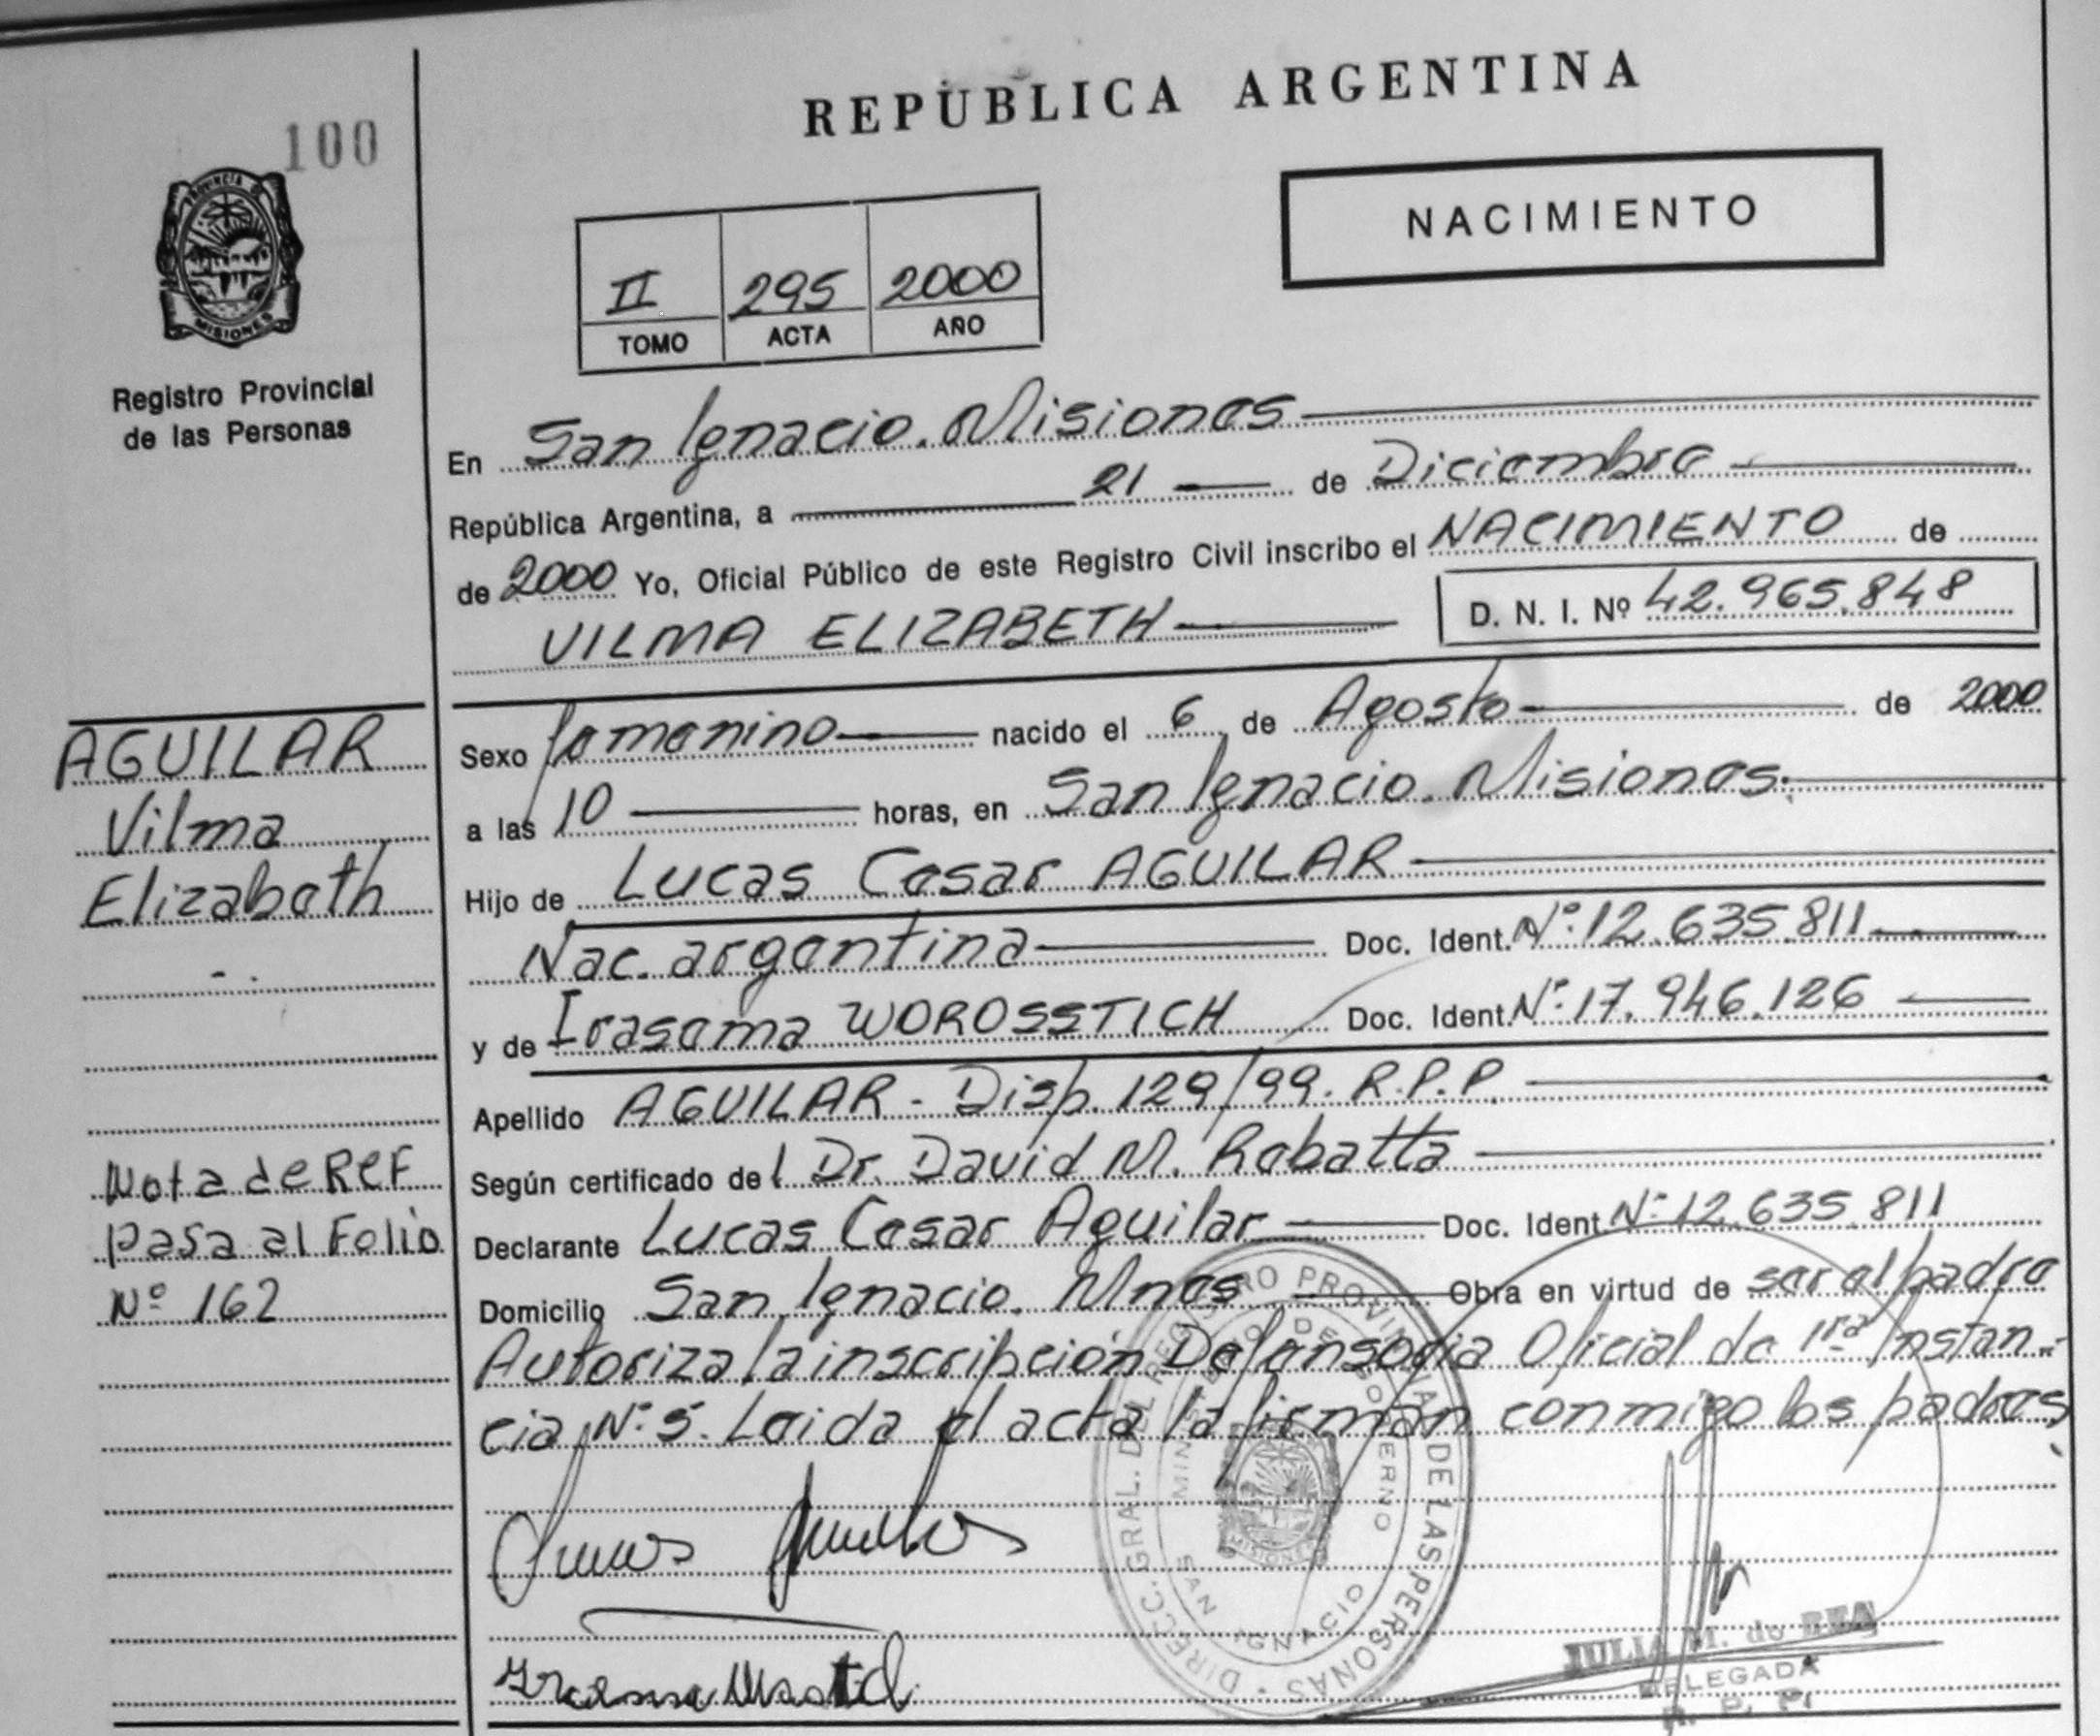 100
PROVINCIA DE
MISIONES
Registro Provincial
de las Personas
REPUBLICA ARGENTINA
NACIMIENTO
II 295 2000
TOMO ACTA AÑO
En San Ignacio. Misiones
República Argentina, a 21 de Diciembre
de 2000 Yo, Oficial Público de este Registro Civil inscribo el NACIMIENTO de
VILMA ELIZABETH D. N. I. Nº 42.965.848
AGUILAR
Vilma
Elizabeth
Sexo femenino nacido el 6 de Agosto de 2000
a las 10 horas, en San Ignacio. Misiones.
Hijo de Lucas Cesar AGUILAR
Nac. argentina Doc. Ident. Nº: 12.635.811
y de Irasema WOROSSTICH Doc. Ident. Nº: 17.946.126
Apellido AGUILAR - Disp. 129/99. R.P.P.
Según certificado del Dr. David M. Rabatta
Declarante Lucas Cesar Aguilar Doc. Ident. Nº 12.635.811
Domicilio San Ignacio. Mnes Obra en virtud de ser el padre
Autoriza la inscripción Defensoria Oficial de 1ra Instan-
cia Nº: 5. Leida el acta la firman conmigo los padres
Nota de REF
pasa al Folio
Nº 162
DIRECC. GRAL. DEL REGISTRO PROVINCIAL DE LAS PERSONAS
MINISTERIO DE GOBIERNO
SAN IGNACIO
MISIONES
JULIA M. de
DELEGADA
R. P. P.